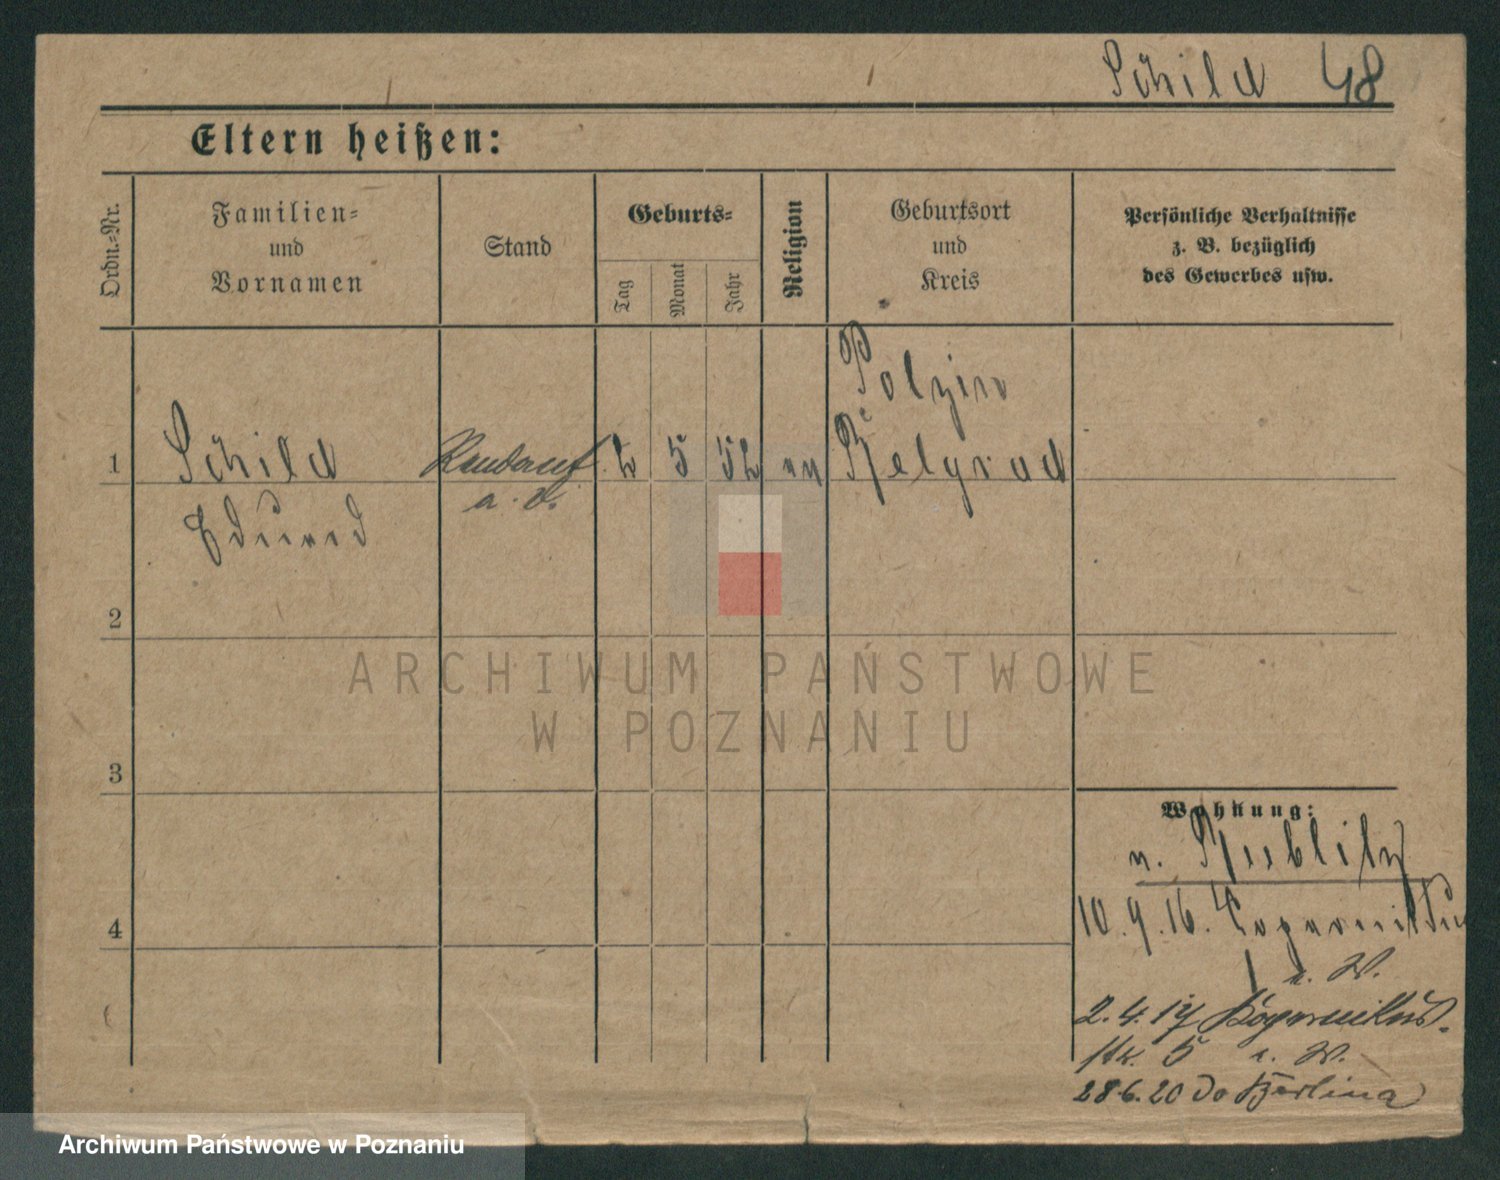 Schild 48
Eltern heißen:
Ordn.-Nr.
Familien-
und
Vornamen
Stand
Geburts-
Tag
Monat
Jahr
Religion
Geburtsort
und
Kreis
Persönliche Verhältnisse
z. B. bezüglich
des Gewerbes usw.
1
Schild
Eduard
a. d.
2
5
52
ev
Polzin
Belgrad
2
3
4
Wohnung:
v.
10. 9. 16.
u. W.
2. 4. 17 Kopernikus-
str. 5 u. W.
28.6.20 Do Berlina
ARCHIWUM PAŃSTWOWE
W POZNANIU
Archiwum Państwowe w Poznaniu